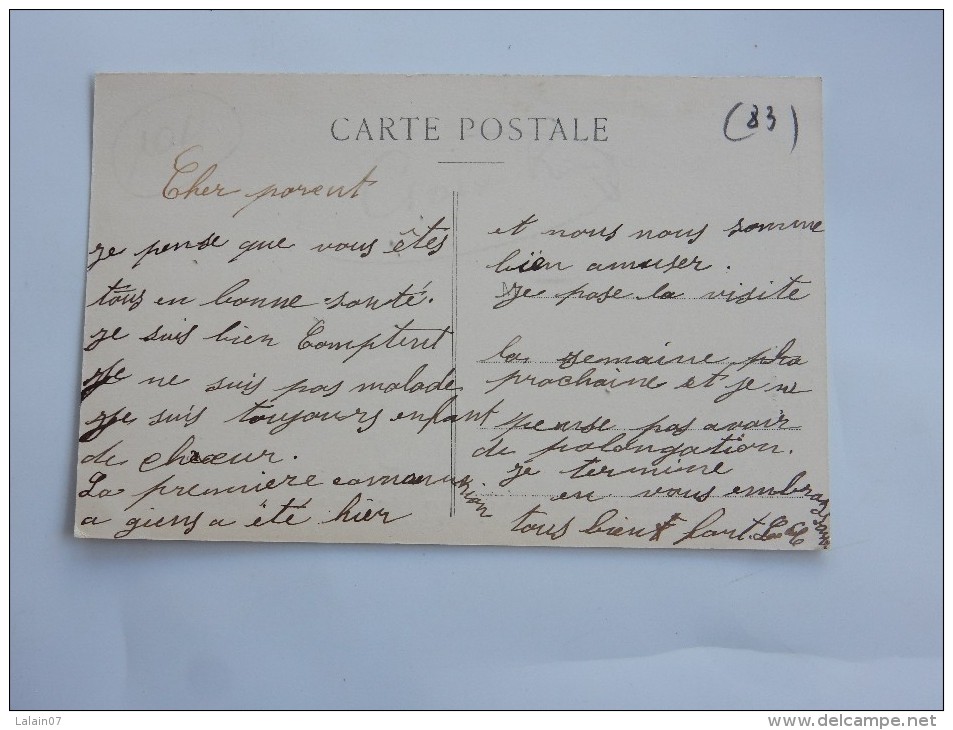 CARTE POSTALE
(83)
Cher parent
je pense que vous êtes
tous en bonne santé.
je suis bien Comptent
Je ne suis pas malade
je suis toujours enfant
de chœur.
La premmière commonion
a giens a été hier
et nous nous somme
bien amuser.
je pase la visite
la semaine pha
prochaine et je ne
pense pas avoir
de polongation.
je termine
en vous embrassant
tous bien fort.
Lalain07
www.delcampe.net